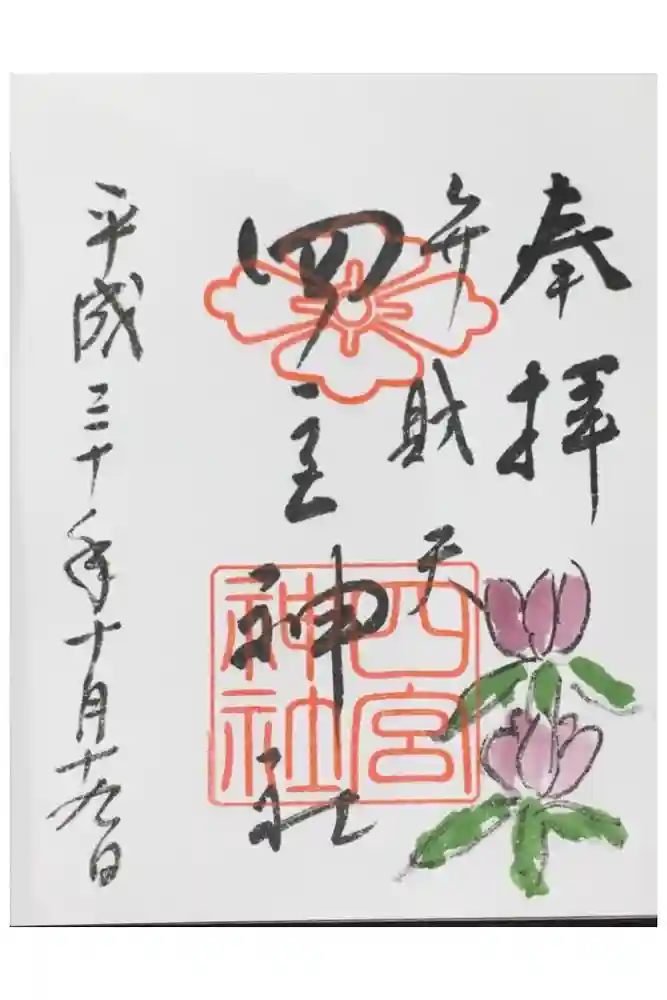 奉拝
弁財天
四宮神社
四宮神社
平成三十年十月十九日